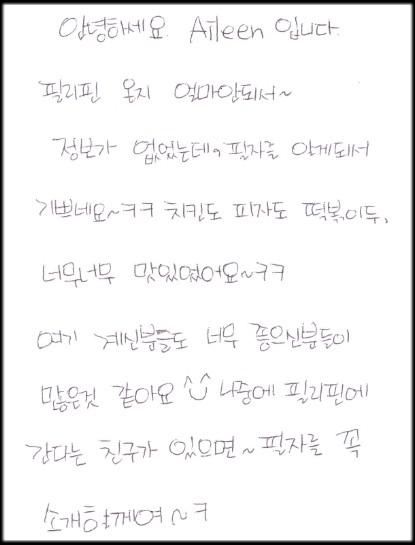 안녕하세요 Aileen 입니다.
필리핀 온지 얼마안되서~
정보가 없었는데, 필자를 알게되서
기쁘네요~ㅋㅋ 치킨도 피자도 떡볶이두,
너무너무 맛있었어요~ㅋㅋ
여기 계신분들도 너무 좋으신분들이
많은것 같아요 나중에 필리핀에
간다는 친구가 있으면~ 필자를 꼭
소개할께여~ㅋ